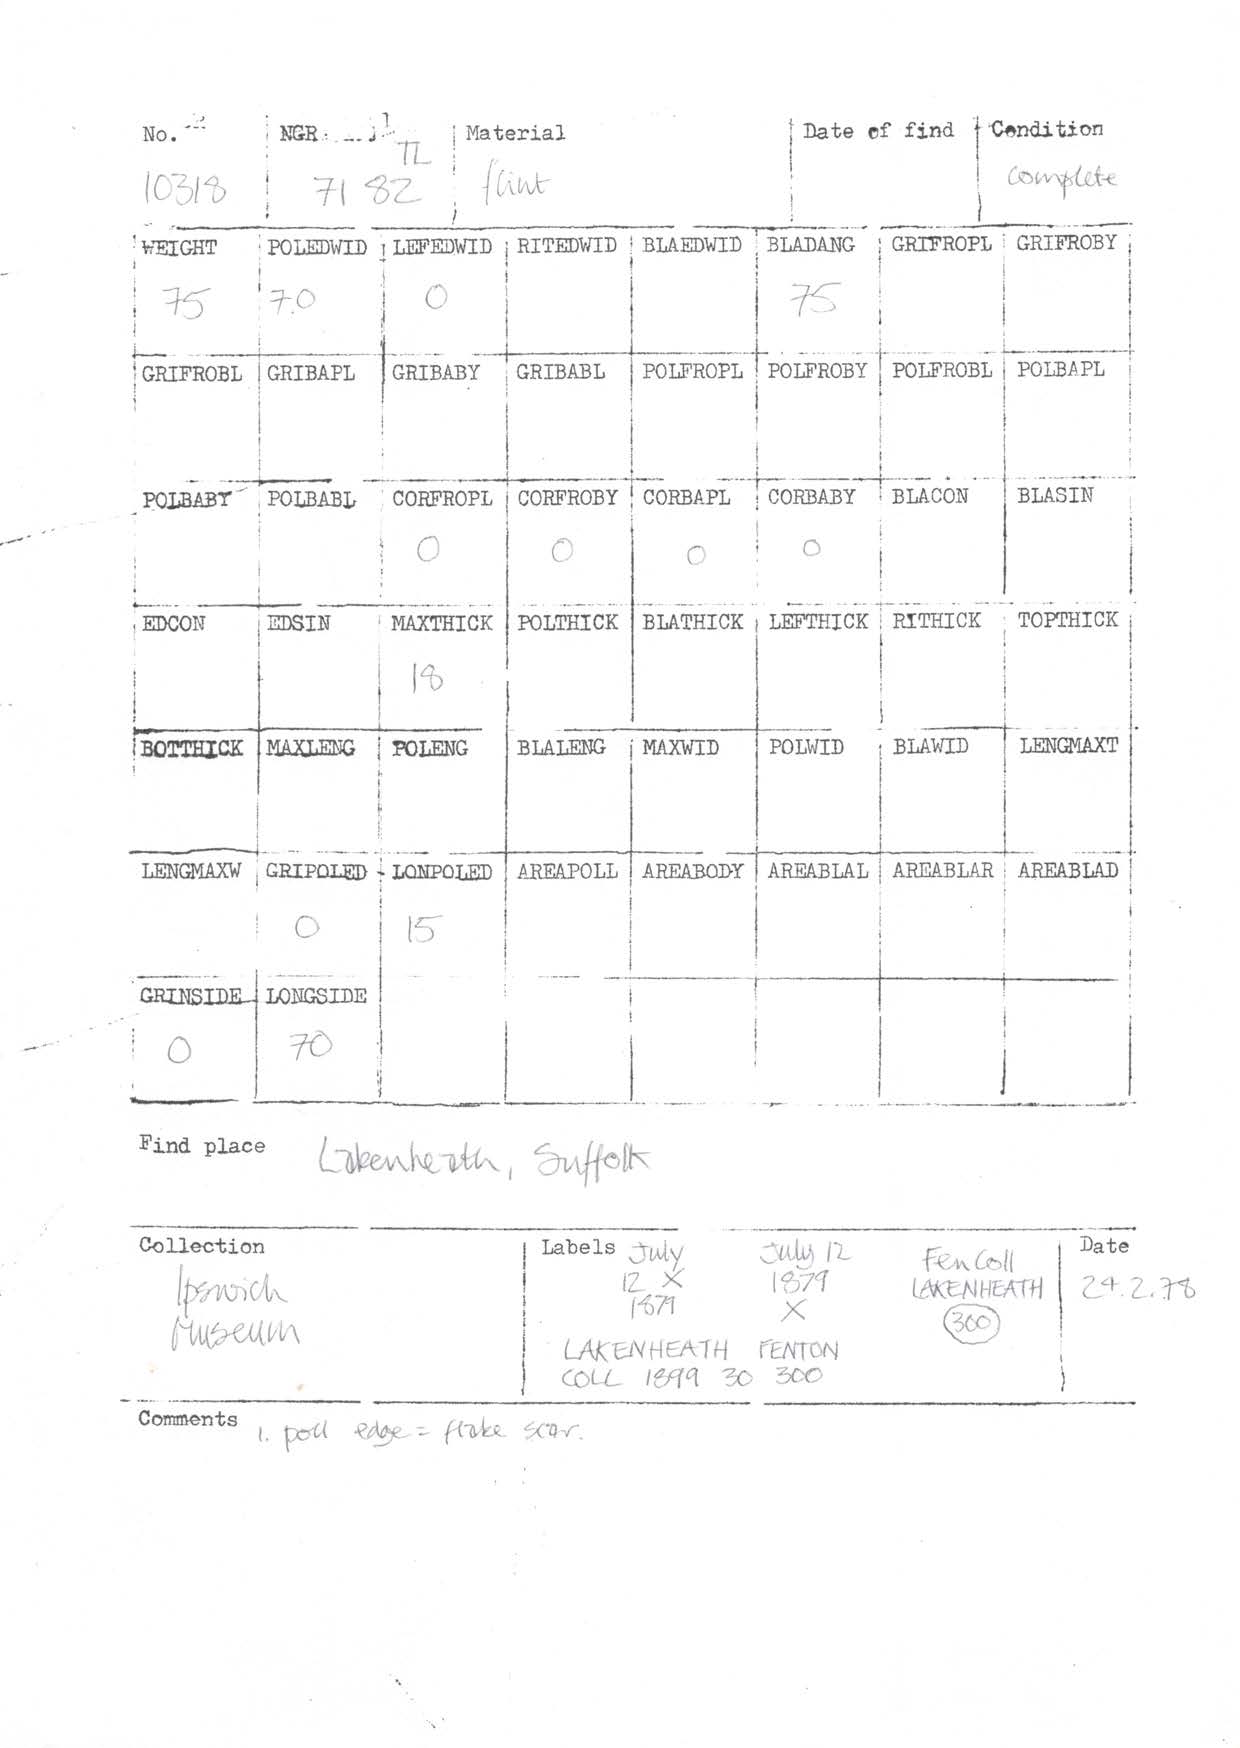 No. NGR Material Date of find Condition
TL
10318 71 82 flint complete
WEIGHT POLEDWID LEFEDWID RITEDWID BLAEDWID BLADANG GRIFROPL GRIFROBY
75 7.0 0 75
GRIFROBL GRIBAPL GRIBABY GRIBABL POLFROPL POLFROBY POLFROBL POLBAPL
POLBABY POLBABL CORFROPL CORFROBY CORBAPL CORBABY BLACON BLASIN
0 0 0 0
EDCON EDSIN MAXTHICK POLTHICK BLATHICK LEFTHICK RITHICK TOPTHICK
18
BOTTHICK MAXLENG POLENG BLALENG MAXWID POLWID BLAWID LENGMAXT
LENGMAXW GRIPOLED LONPOLED AREAPOLL AREABODY AREABLAL AREABLAR AREABLAD
0 15
GRINSIDE LONGSIDE
0 70
Find place Lakenheath, Suffolk
Collection
Ipswich
Museum
Labels
July
12 X
1879
July 12
1879
X
Fen Coll
LAKENHEATH
300
LAKENHEATH FENTON
COLL 1899 30 300
Date
24.2.78
Comments 1. poll edge = flake scar.